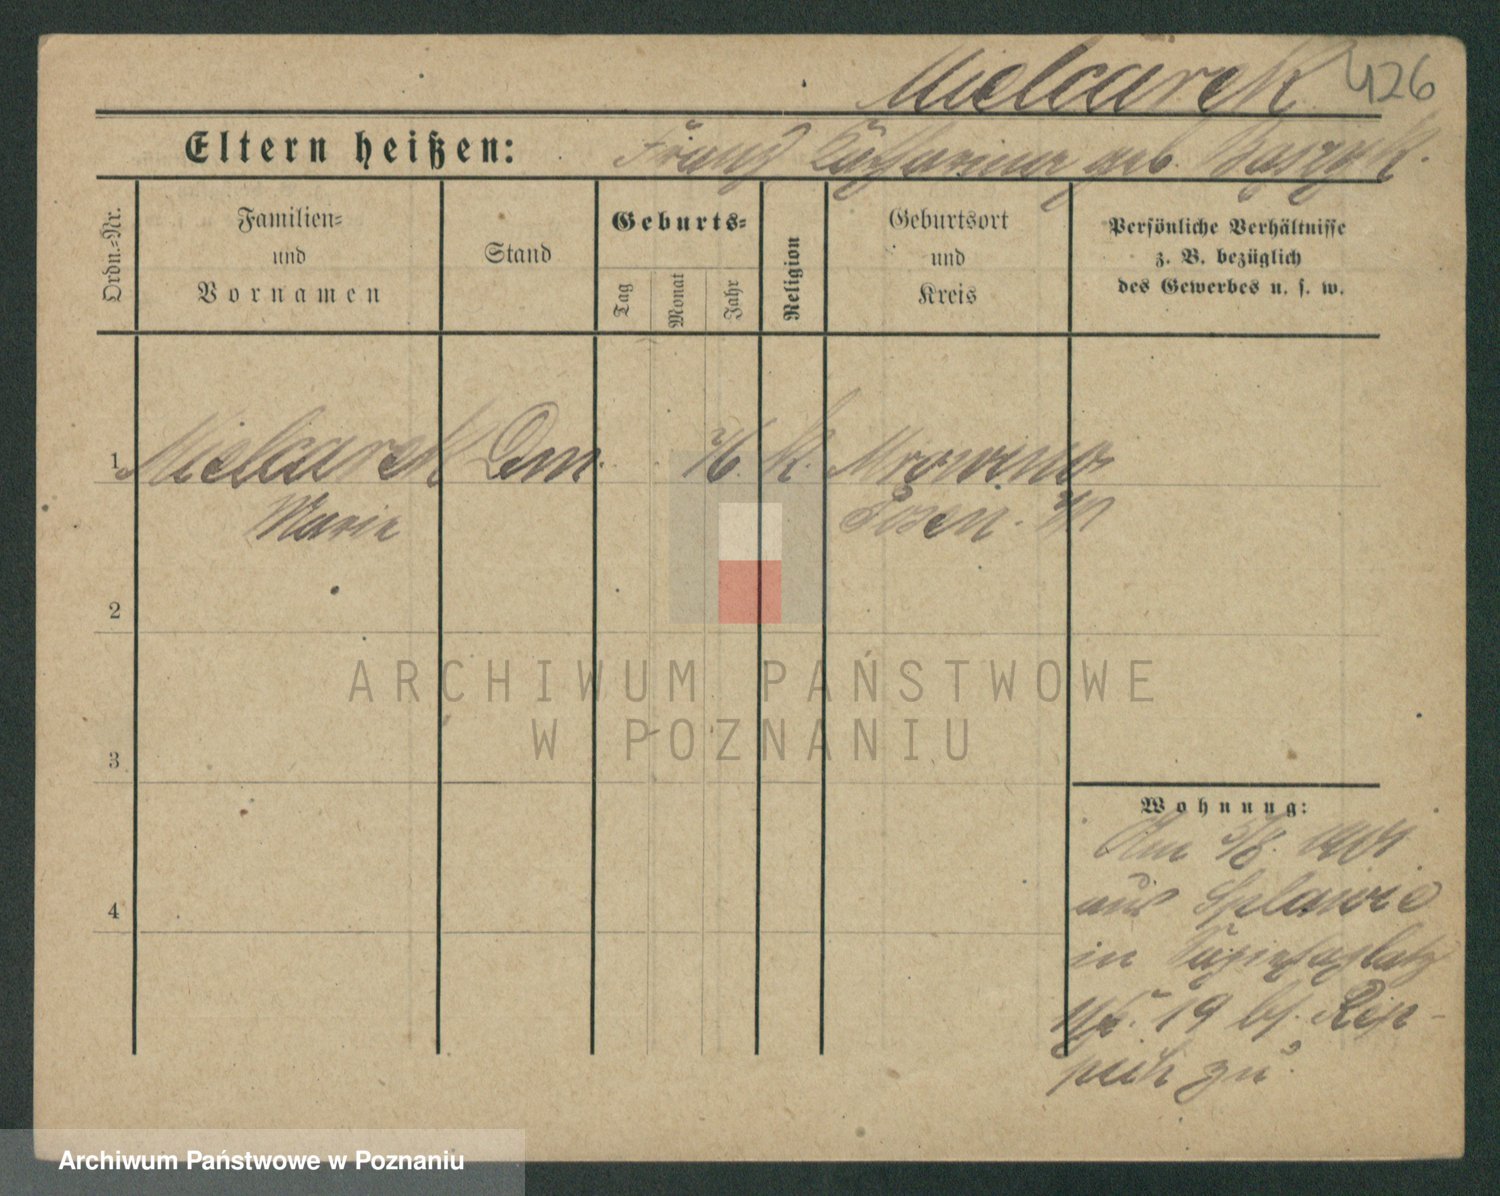 Mielcarek 426
Eltern heißen: Franz Katharina geb.
Ordn.=Nr.
Familien=
und
Vornamen
Stand
Geburts=
Tag
Monat
Jahr
Religion
Geburtsort
und
Kreis
Persönliche Verhältnisse
z. B. bezüglich
des Gewerbes u. s. w.
1 Mielcarek K. Mrowino
Marie Posen
2
3
4
Wohnung:
Am 1904
aus Splawie
in
19 bei Rep-
zu.
ARCHIWUM PAŃSTWOWE
W POZNANIU
Archiwum Państwowe w Poznaniu